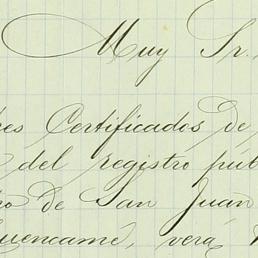 Muy Sr.
res Certificados de
del registro púb
ro de San Juan
uencamé, verá